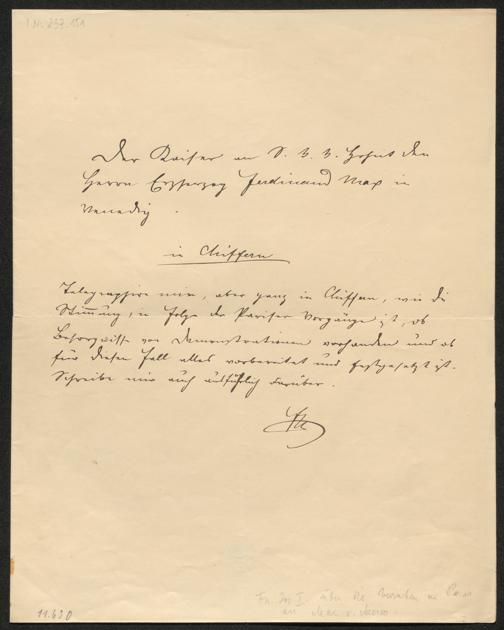 I.N. 237.151
Der Kaiser an S. k. k. Hoheit den
Herrn Erzherzog Ferdinand Max in
Venedig.
in Chiffern
Telegraphire mir, aber ganz in Chiffern, wie die
Stimmung, in Folge der Pariser Vorgänge ist, ob
Besorgnisse von Demonstrationen vorhanden und ob
für diesen Fall alles vorbereitet und festgesetzt ist.
Schreibe mir auch ausführlich darüber.
Fr. Jos I. über
an Max v.
11.630